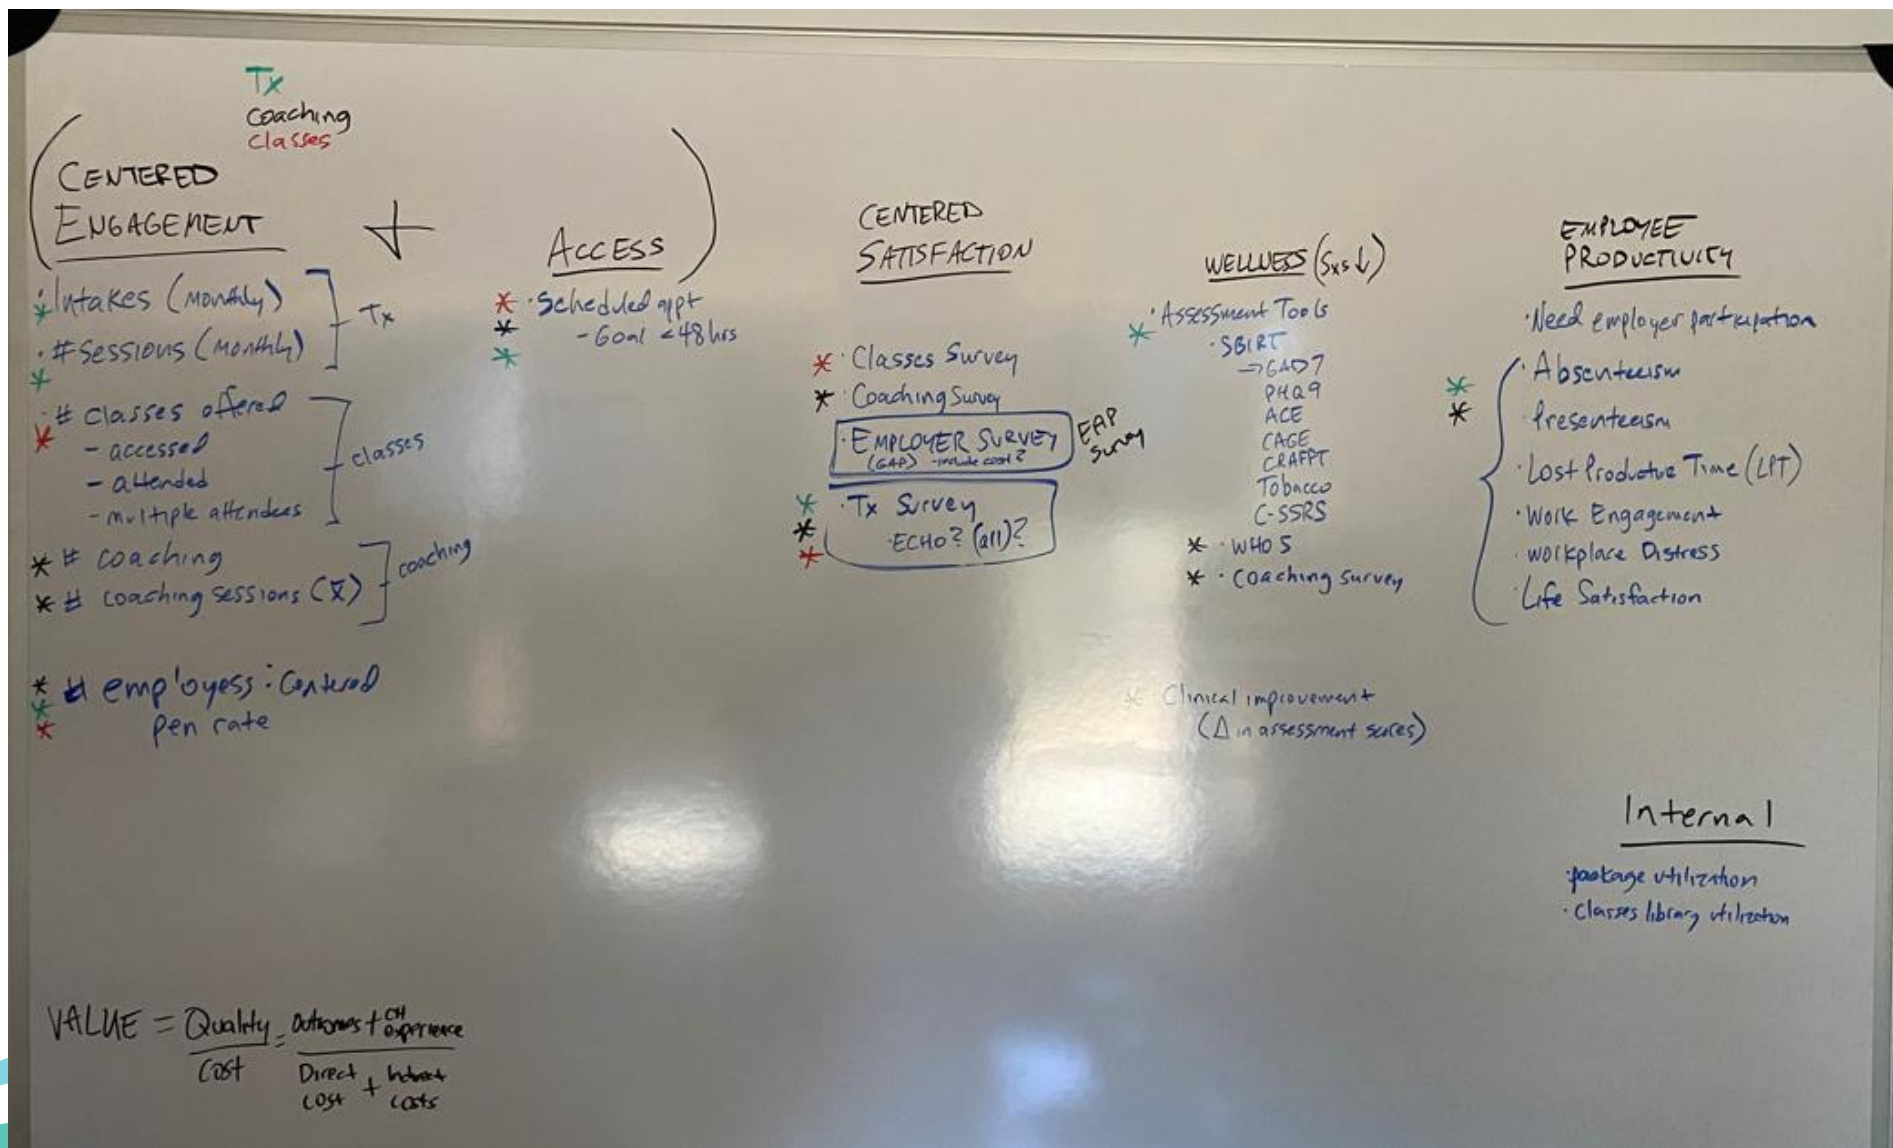 Tx
coaching
classes
CENTERED
ENGAGEMENT
+
· Intakes (monthly)
· # Sessions (monthly)
Tx
· # classes offered
- accessed
- attended
- multiple attendees
classes
# coaching
# coaching sessions (x̄)
coaching
# employess : Centered
pen rate
ACCESS
· Scheduled appt
- Goal < 48 hrs
CENTERED
SATISFACTION
· Classes Survey
· Coaching Survey
· EMPLOYER SURVEY
(GAP) - include cost?
EAP
Survey
· Tx Survey
· ECHO? (all)?
WELLNESS (Sxs ↓)
· Assessment Tools
· SBIRT
→ GAD7
PHQ9
ACE
CAGE
CRAFFT
Tobacco
C-SSRS
· WHO 5
· Coaching Survey
Clinical improvement
(Δ in assessment scores)
EMPLOYEE
PRODUCTIVITY
· Need employer participation
· Absenteeism
· Presenteeism
· Lost Productive Time (LPT)
· Work Engagement
· workplace Distress
· Life Satisfaction
Internal
· package utilization
· Classes library utilization
VALUE = Quality / Cost = Outcomes + CH experience / Direct cost + Indirect costs